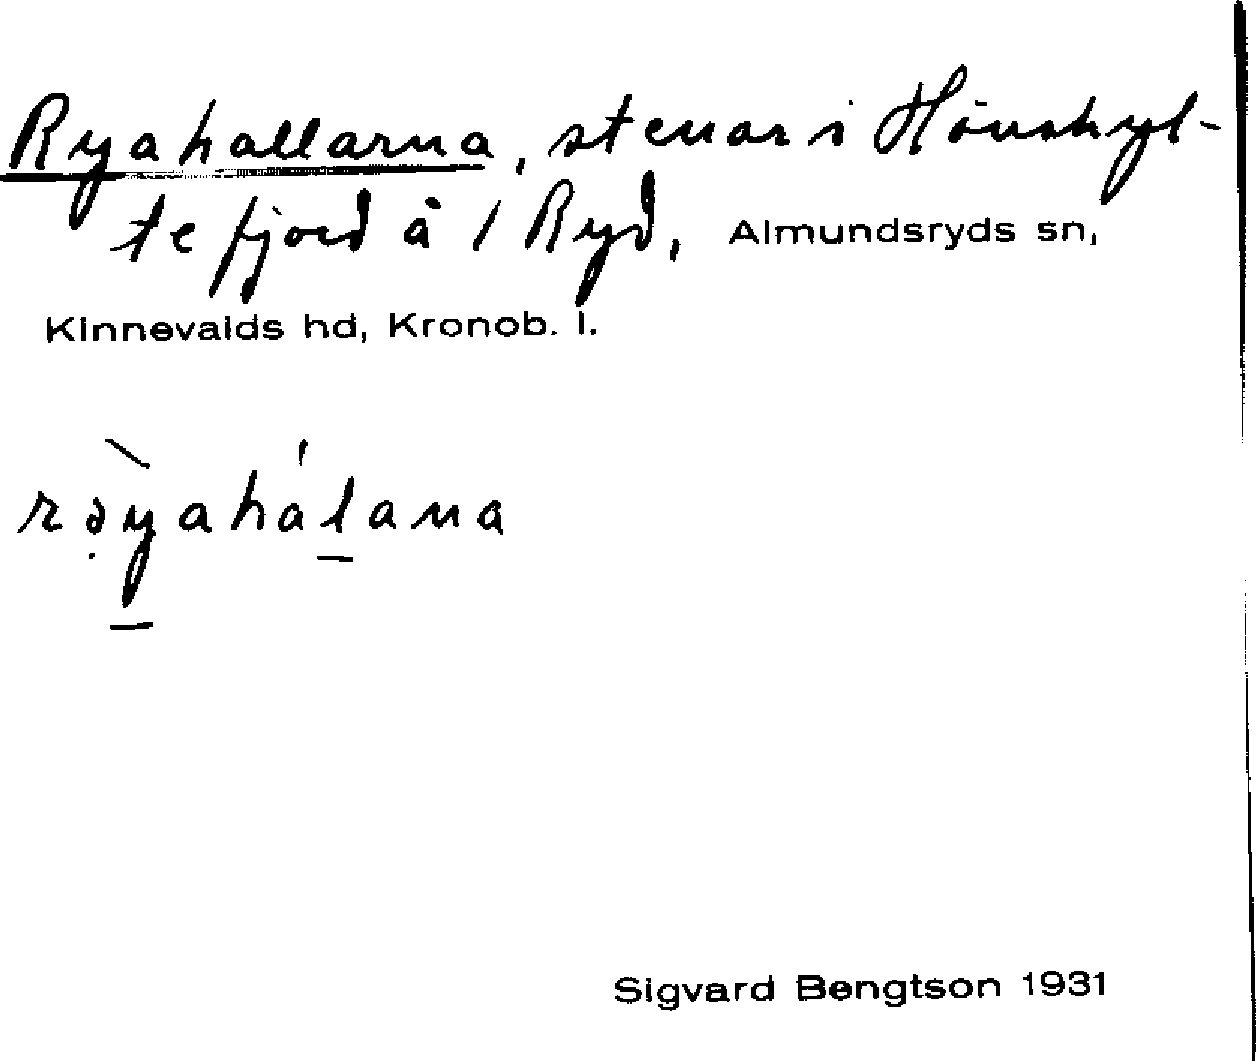 Ryahallarna, stenar i Hönshyl-
te fjord å 1 Ryd, Almundsryds sn,
Kinnevalds hd, Kronob. l.
rə̣̀yahálana
Sigvard Bengtson 1931